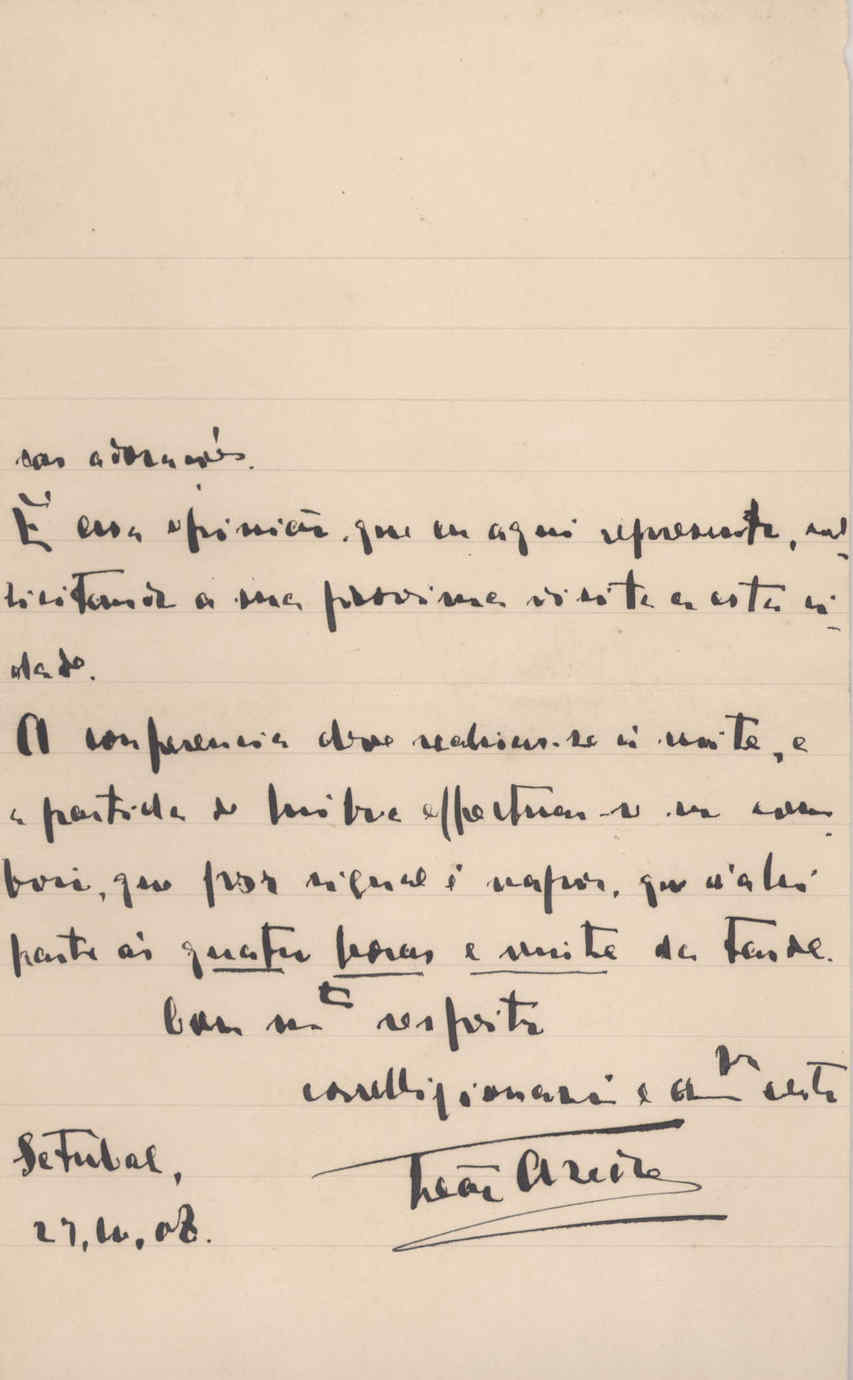 sas adorações.
É essa opinião, que eu aqui represento, sol-
licitando a sua proxima visita a esta ci-
dade.
A conferencia deve realisar-se á noite, e
a partida de Lisboa effectuar-se no com-
boio, que por signal é vapor, que d'ahi
parte ás quatro horas e vinte da tarde.
Com mto respeito
correlligionario e amo certo
Leão Azedo
Setubal,
27, 10, 08.